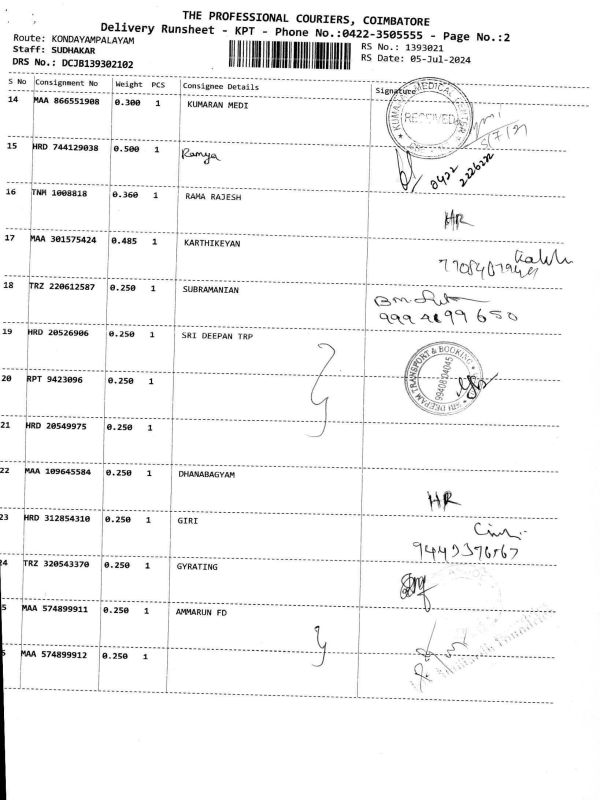 THE PROFESSIONAL COURIERS, COIMBATORE
Delivery Runsheet - KPT - Phone No.:0422-3505555 - Page No.:2
Route: KONDAYAMPALAYAM
Staff: SUDHAKAR
DRS No.: DCJB139302102
RS No.: 1393021
RS Date: 05-Jul-2024
S No Consignment No Weight PCS Consignee Details Signature
14 MAA 866551908 0.300 1 KUMARAN MEDI
RECEIVED
5/7/21
15 HRD 744129038 0.500 1 Ramya
0422
2226222
16 TNM 1008818 0.360 1 RAMA RAJESH
HR
17 MAA 301575424 0.485 1 KARTHIKEYAN
18 TRZ 220612587 0.250 1 SUBRAMANIAN
19 HRD 20526906 0.250 1 SRI DEEPAN TRP
SRI DEEPAM TRANSPORT & BOOKING
99408 04045
20 RPT 9423096 0.250 1
21 HRD 20549975 0.250 1
22 MAA 109645584 0.250 1 DHANABAGYAM
HR
23 HRD 312854310 0.250 1 GIRI
24 TRZ 320543370 0.250 1 GYRATING
5 MAA 574899911 0.250 1 AMMARUN FD
MAA 574899912 0.250 1